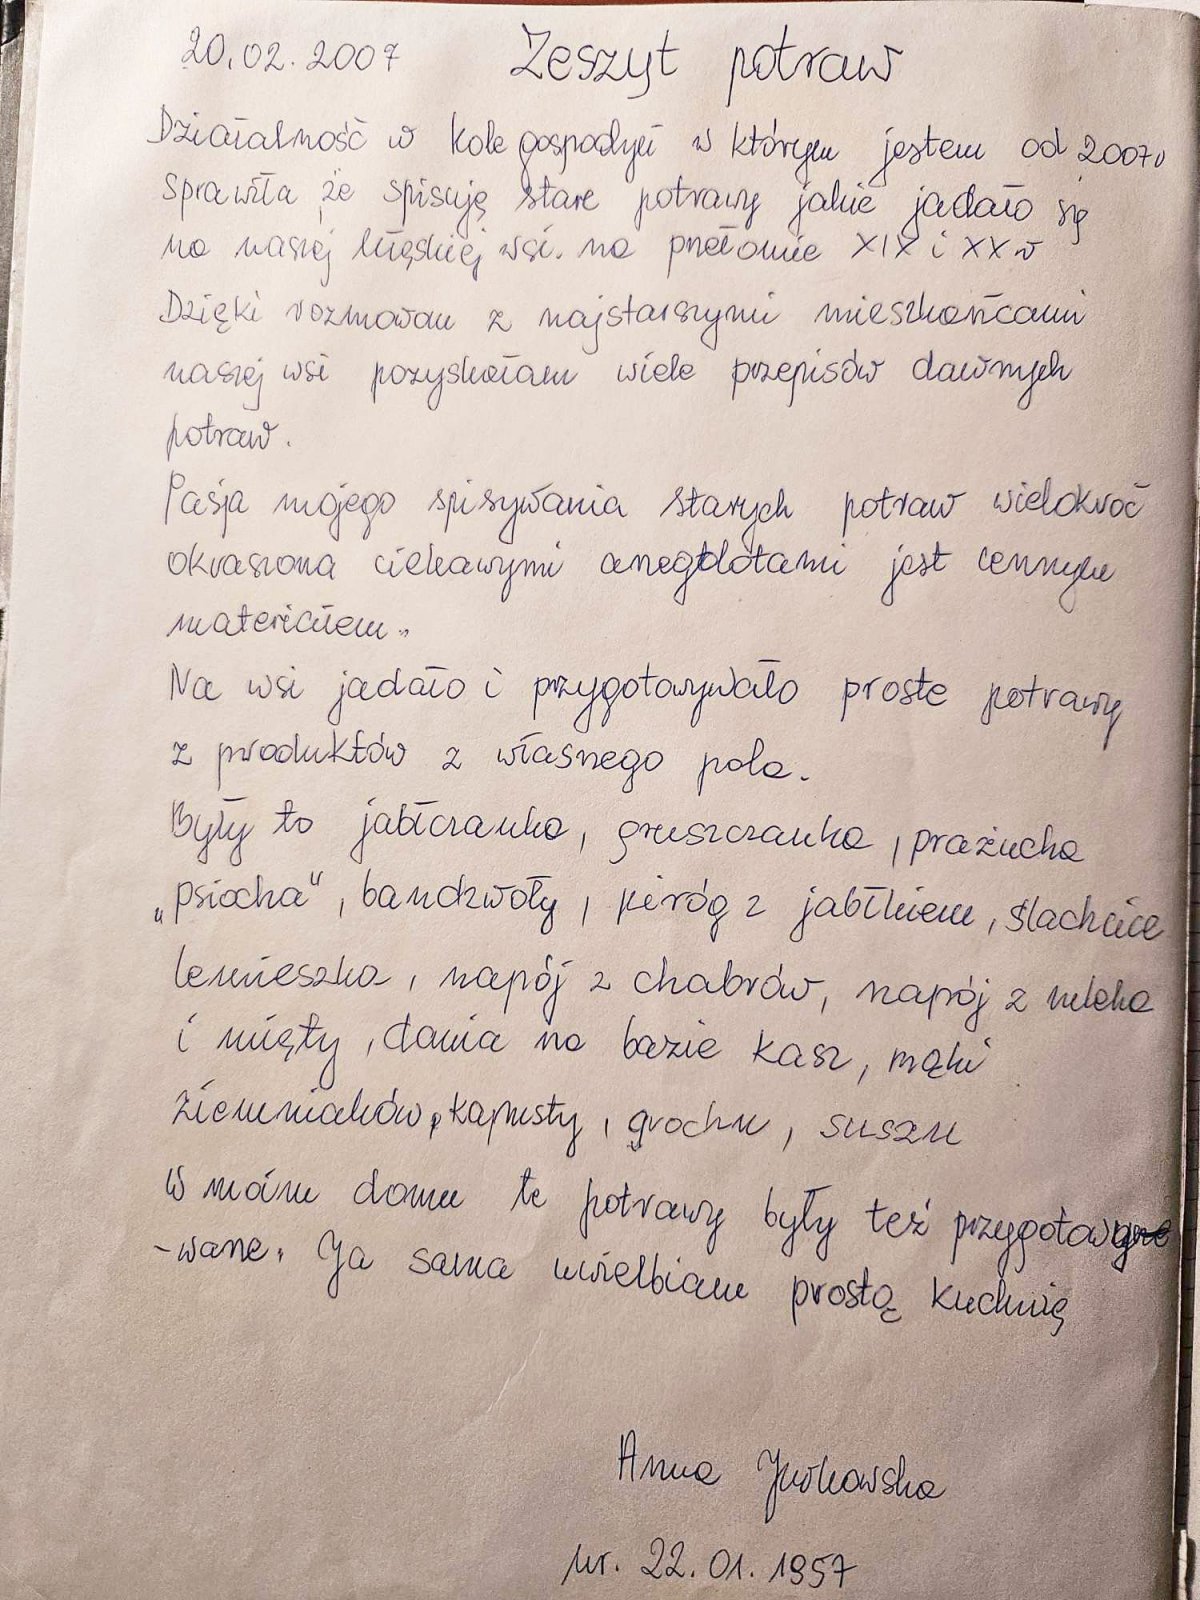 20.02.2007 Zeszyt potraw
Działalność w kole gospodyń w którym jestem od 2007r
sprawiła że spisuję stare potrawy jakie jadało się
na naszej wsi. na przełomie XIX i XX w
Dzięki rozmowau z najstarszymi mieszkańcami
naszej wsi pozyskałam wiele przepisów dawnych
potraw.
Pasja mojego spisywania starych potraw wielokroć
okraszona ciekawymi anegdotami jest cennym
materiałem.
Na wsi jadało i przygotowywało proste potrawy
z produktów z własnego pola.
Były to jabłczanka, gruszczanka, prażucha
„psiocha", bandzwoły, piróg z jabłkiem, ślachcice
lemieszka, napój z chabrów, napój z mleka
i mięty, dania na bazie kasz, mąki
ziemniaków, kapusty, grochu, suszu
W moim domu te potrawy były też przygotow
-wane. Ja sama uwielbiam prostą kuchnię
Anna Jurkowska
ur. 22.01.1957